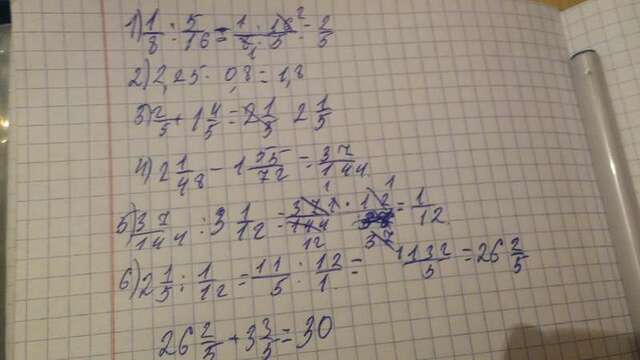 1) 1/8 : 5/16 = 1 · 16 2/8 · 5 1 = 2/5
2) 2,25 · 0,8 = 1,8
3) 2/5 + 1 4/5 = 2 1/5 2 1/5
4) 2 1/48 - 1 55/72 = 37/144
5) 37/144 : 3 1/12 = 37 1/144 12 · 12 1/37 = 1/12
6) 2 1/5 : 1/12 = 11/5 · 12/1 = 132/5 = 26 2/5
26 2/5 + 3 3/5 = 30